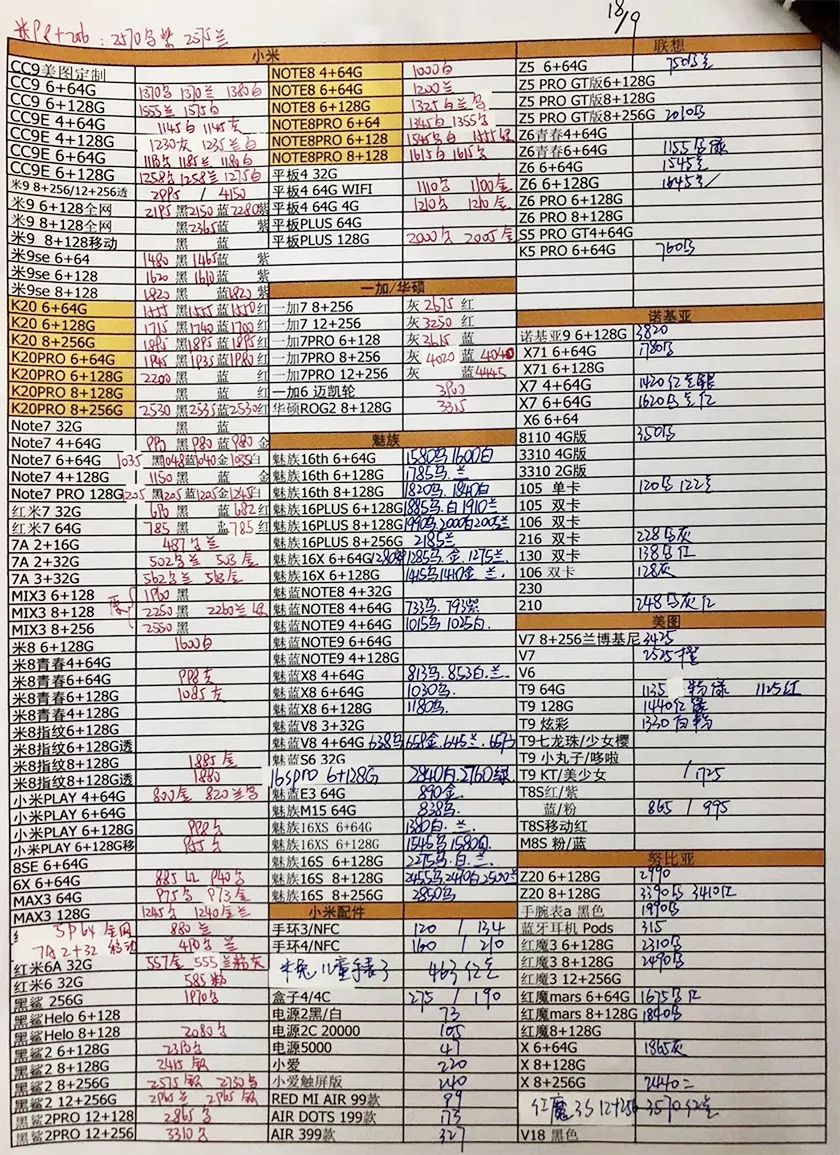 18/9
小米
CC9美图定制
CC9 6+64G 1370 1370兰 1380白
CC9 6+128G 1555兰 1575白
CC9E 4+64G 1145白 1145灰
CC9E 4+128G 1230灰 1235兰白
CC9E 6+64G 1185兰 1180白
CC9E 6+128G 1258兰 1275白
米9 8+256/12+256透 2995 / 4150
米9 6+128全网 2195黑2150蓝2280紫
米9 8+128全网 黑2365蓝 紫
米9 8+128移动 黑 蓝
米9se 6+64 1480黑1465蓝 紫
米9se 6+128 1620黑1610蓝 紫
米9se 8+128 1820黑 蓝1820紫
K20 6+64G 1555黑1555蓝1550红
K20 6+128G 1715黑1740蓝1700红
K20 8+256G 黑 蓝 红
K20PRO 6+64G 1945黑1935蓝1980红
K20PRO 6+128G 2200黑 蓝 红
K20PRO 8+128G 黑 蓝 红
K20PRO 8+256G 2530黑2535蓝2530红
Note7 32G 黑 蓝
Note7 4+64G 黑980蓝980金
Note7 6+64G 1035黑1048蓝1040金1035白
Note7 4+128G 1150黑 蓝 金
Note7 PRO 128G 1205黑1205蓝1205金1245白
红米7 32G 黑 蓝682红
红米7 64G 785黑 蓝785红
7A 2+16G 487
7A 2+32G 502 兰 503金
7A 3+32G 562 兰 563金
MIX3 6+128 1960黑
MIX3 8+128 2250黑 2260兰
MIX3 8+256 2550黑
米8 6+128G 1600白
米8青春4+64G
米8青春6+64G 998灰
米8青春6+128G 1085灰
米8青春4+128G
米8指纹6+128G
米8指纹6+128G透
米8指纹8+128G 1885金
米8指纹8+128G透 1880
小米PLAY 4+64G 800金 820兰
小米PLAY 6+64G
小米PLAY 6+128G
小米PLAY 6+128G移
8SE 6+64G
6X 6+64G 885红 940
MAX3 64G 975 973金
MAX3 128G 1245 1240金兰
880兰
7A 2+32 移动 470 兰
红米6A 32G 557金 555兰粉灰
红米6 32G 585粉
黑鲨 256G 1970
黑鲨Helo 6+128
黑鲨Helo 8+128 2080
黑鲨2 6+128G
黑鲨2 8+128G 2415银
黑鲨2 8+256G 2575银 2730
黑鲨2 12+256G 2965兰 2965银
黑鲨2PRO 12+128 2865
黑鲨2PRO 12+256 3310
NOTE8 4+64G 1000白
NOTE8 6+64G 1200兰
NOTE8 6+128G 1325白兰
NOTE8PRO 6+64 1345白 1355
NOTE8PRO 6+128 1545 白 1555
NOTE8PRO 8+128 1615白 1615
平板4 32G
平板4 64G WIFI 1110 1100金
平板4 64G 4G 1210 1210金
平板PLUS 64G
平板PLUS 128G 2000 2005金
一加/华硕
一加7 8+256 灰 2675 红
一加7 12+256 灰 3250 红
一加7PRO 6+128 灰 2615 蓝
一加7PRO 8+256 灰 4020 蓝 4040
一加7PRO 12+256 灰 蓝 4445
一加6 迈凯轮
华硕ROG2 8+128G 3315
魅族
魅族16th 6+64G 1580 1600白
魅族16th 6+128G 1785 兰
魅族16th 8+128G 1820 1840白
魅族16PLUS 6+128G 1885 白1910兰
魅族16PLUS 8+128G 1990 2000白2005兰
魅族16PLUS 8+256G 2185兰
魅族16X 6+64G 1285 金.1275兰.
魅族16X 6+128G 1415 1410金 兰.
魅蓝NOTE8 4+32G
魅蓝NOTE8 4+64G 733 793紫
魅蓝NOTE9 4+64G 1015 1025白.
魅蓝NOTE9 6+64G
魅蓝NOTE9 4+128G
魅蓝X8 4+64G 813 853白.兰.
魅蓝X8 6+64G 1030
魅蓝X8 6+128G 1180
魅蓝V8 3+32G
魅蓝V8 4+64G 638 658金.645兰.
魅蓝S6 32G
16spro 6+128G 2840白.2760绿
魅蓝E3 64G 890金.
魅族M15 64G 838
魅族16XS 6+64G 1380白.兰.
魅族16XS 6+128G 1545 1580白.
魅族16S 6+128G 2275 白.兰.
魅族16S 8+128G 2455 2410白2500兰
魅族16S 8+256G 2850
小米配件
手环3/NFC 120 / 134
手环4/NFC 160 / 210
米兔儿童手表3 463 红兰
盒子4/4C 275 / 190
电源2黑/白 73
电源2C 20000 105
电源5000 47
小爱 220
小爱触屏版 240
RED MI AIR 99款 89
AIR DOTS 199款 173
AIR 399款 327
联想
Z5 6+64G 750
Z5 PRO GT版6+128G
Z5 PRO GT版8+128G
Z5 PRO GT版8+256G 2010
Z6青春4+64G
Z6青春6+64G 1155
Z6 6+64G 1545
Z6 6+128G 1645
Z6 PRO 6+128G
Z6 PRO 8+128G
S5 PRO GT4+64G
K5 PRO 6+64G 760
诺基亚
诺基亚9 6+128G 3820
X71 6+64G 1780
X71 6+128G
X7 4+64G 1420红兰
X7 6+64G 1620 兰 红
X6 6+64
8110 4G版 350
3310 4G版
3310 2G版
105 单卡 120 122兰
105 双卡
106 双卡
216 双卡 228 灰
130 双卡 138 红
106 双卡 128灰
230
210 248 灰 红
美图
V7 8+256兰博基尼 3425
V7 2525橙
V6
T9 64G 1135 粉绿 1125红
T9 128G 1440红绿
T9 炫彩 1330白粉
T9七龙珠/少女樱
T9 小丸子/哆啦
T9 KT/美少女 / 1725
T8S红/紫
蓝/粉 865 / 995
T8S移动红
M8S 粉/蓝
努比亚
Z20 6+128G 2990
Z20 8+128G 3390 3410红
手腕表a 黑色 1990
蓝牙耳机 Pods 315
红魔3 6+128G 2310
红魔3 8+128G 2490
红魔3 12+256G
红魔mars 6+64G 1675 红
红魔mars 8+128G 1840
红魔8+128G
X 6+64G 1865灰
X 8+128G
X 8+256G 2440
红魔3S 12+256 3570红兰
V18 黑色